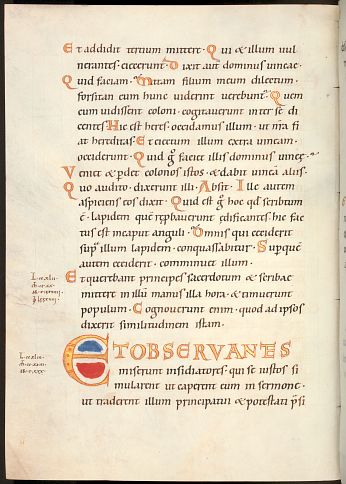 Et addidit tertium mittere. Qui & illum uul
nerantes eiecerunt. Dixit aut dominus uineae.
Quid faciam. Mittam filium meum dilectum.
forsitan cum hunc uiderint uerebunt̄. Quem
cum uidissent coloni. cogitauerunt inter se di
centes. Hic est heres. occidamus illum. ut nr̄a fi
at hereditas. Et eiectum illum extra uineam.
occiderunt. Quid g̊ faci& illis dominus uineę.
Veni& & p̄d& colonos istos. & dabit uineā aliis.
Quo audito. dixerunt illi. Absit. Ille autem
aspiciens eos dixit. Quid est g̊ hoc qd̄ scribtum
ē. lapidem quē reprobauerunt ędificantes. hic fac
tus est in caput anguli. Omnis qui ceciderit
sup̄ illum lapidem. conquassabitur. Sup̄ quē
autem ceciderit. comminu& illum.
Et querebant principes sacerdotum & scribae
mittere in illū manus illa hora. & timuerunt
populum. Cognouerunt enim. quod ad ipsos
dixerit similitudinem istam.
ET OBSERVANTES
miserunt insidiatores. qui se iustos si
mularent ut caperent eum in sermone.
ut traderent illum principatui & potestati p̄si